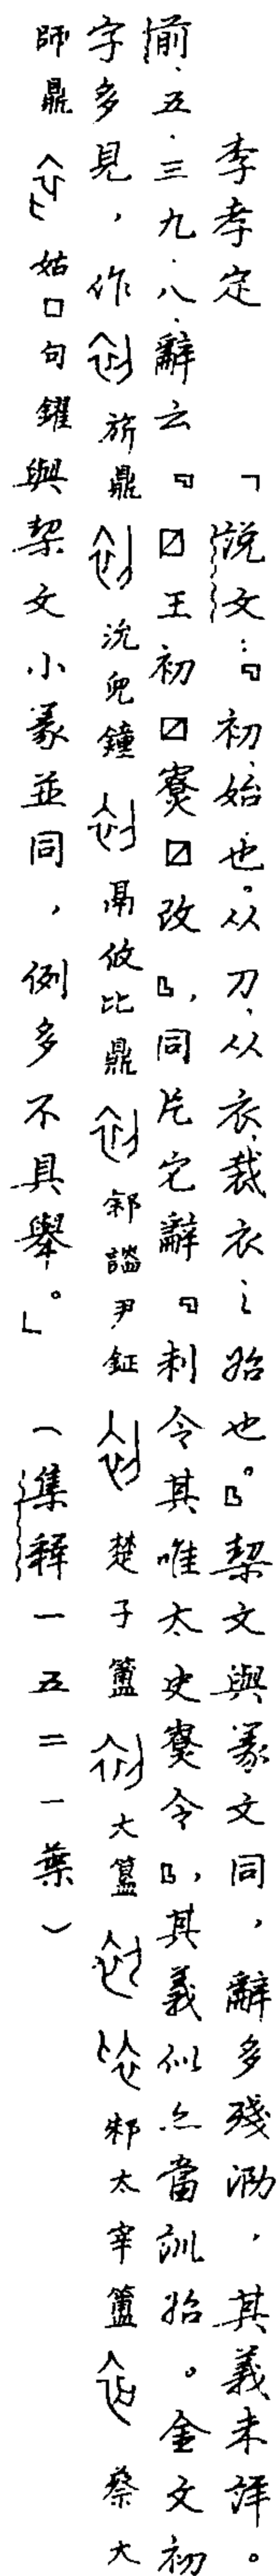 李孝定 「說文：『初，始也。从刀，从衣，裁衣之始也。』契文與篆文同，辭多殘泐，其義未詳。
前·五·三九·八·辭云『☑王初☑寮☑改』，同片它辭『刺令其唯太史寮令』，其義似亦當訓始。金文初
字多見，作 旂鼎 沇兒鐘 鬲攸比鼎 䣄𧫒尹鉦 楚子簠 大簋 邾太宰簠 蔡大
師鼎 姑□句鑃與契文小篆並同，例多不具舉。」 （集釋一五二一葉）